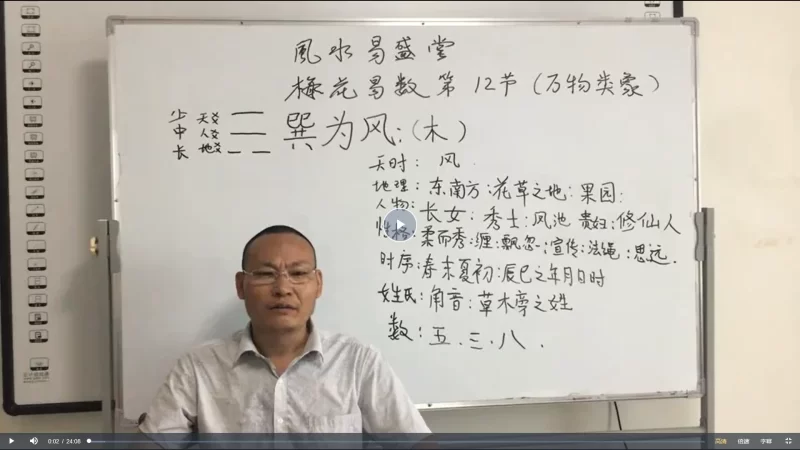 風水易盛堂
梅花易数第12节(万物类象)
少 天爻
中 人爻
长 地爻
巽为风:(木)
天时: 风
地理: 东南方:花草之地:果园:
人物: 长女: 秀士:风池 贵妇:修仙人
性格:柔而秀:缠:飘忽:宣传:法绳:思远.
时序:春末夏初:辰巳之年月日时
姓氏:角音:草木旁之姓
数: 五.三.八.
0:02 / 24:08
高清
倍速
字幕